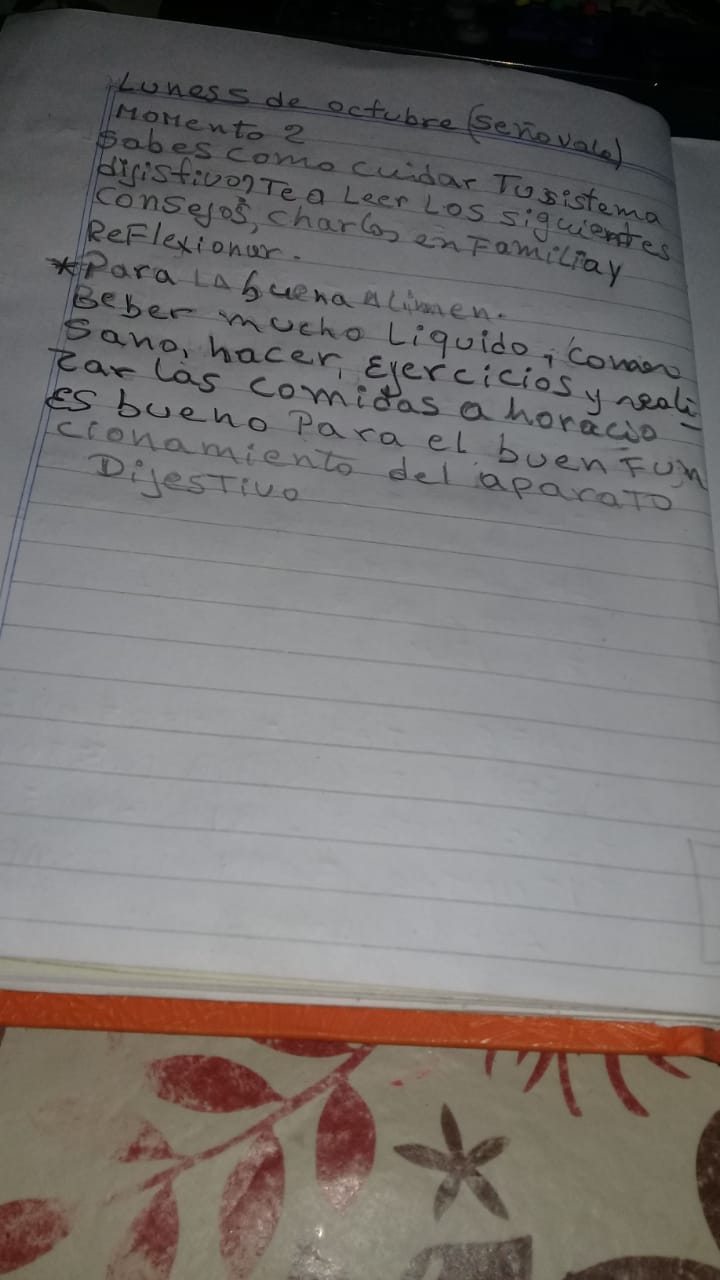 Lunes 5 de octubre (Seño Vale)
MOMento 2
Sabes como cuidar Tu sistema
dijistivo? Te a Leer Los siguientes
consejos, charlas en Familia y
ReFlexionar.
*Para LA buena ALimen.
Beber mucho Liquido, comer
sano, hacer, Ejercicios y reali-
zar las comidas a horacio
ES bueno Para el buen FUN
cionamiento del aparaTO
DijesTivo